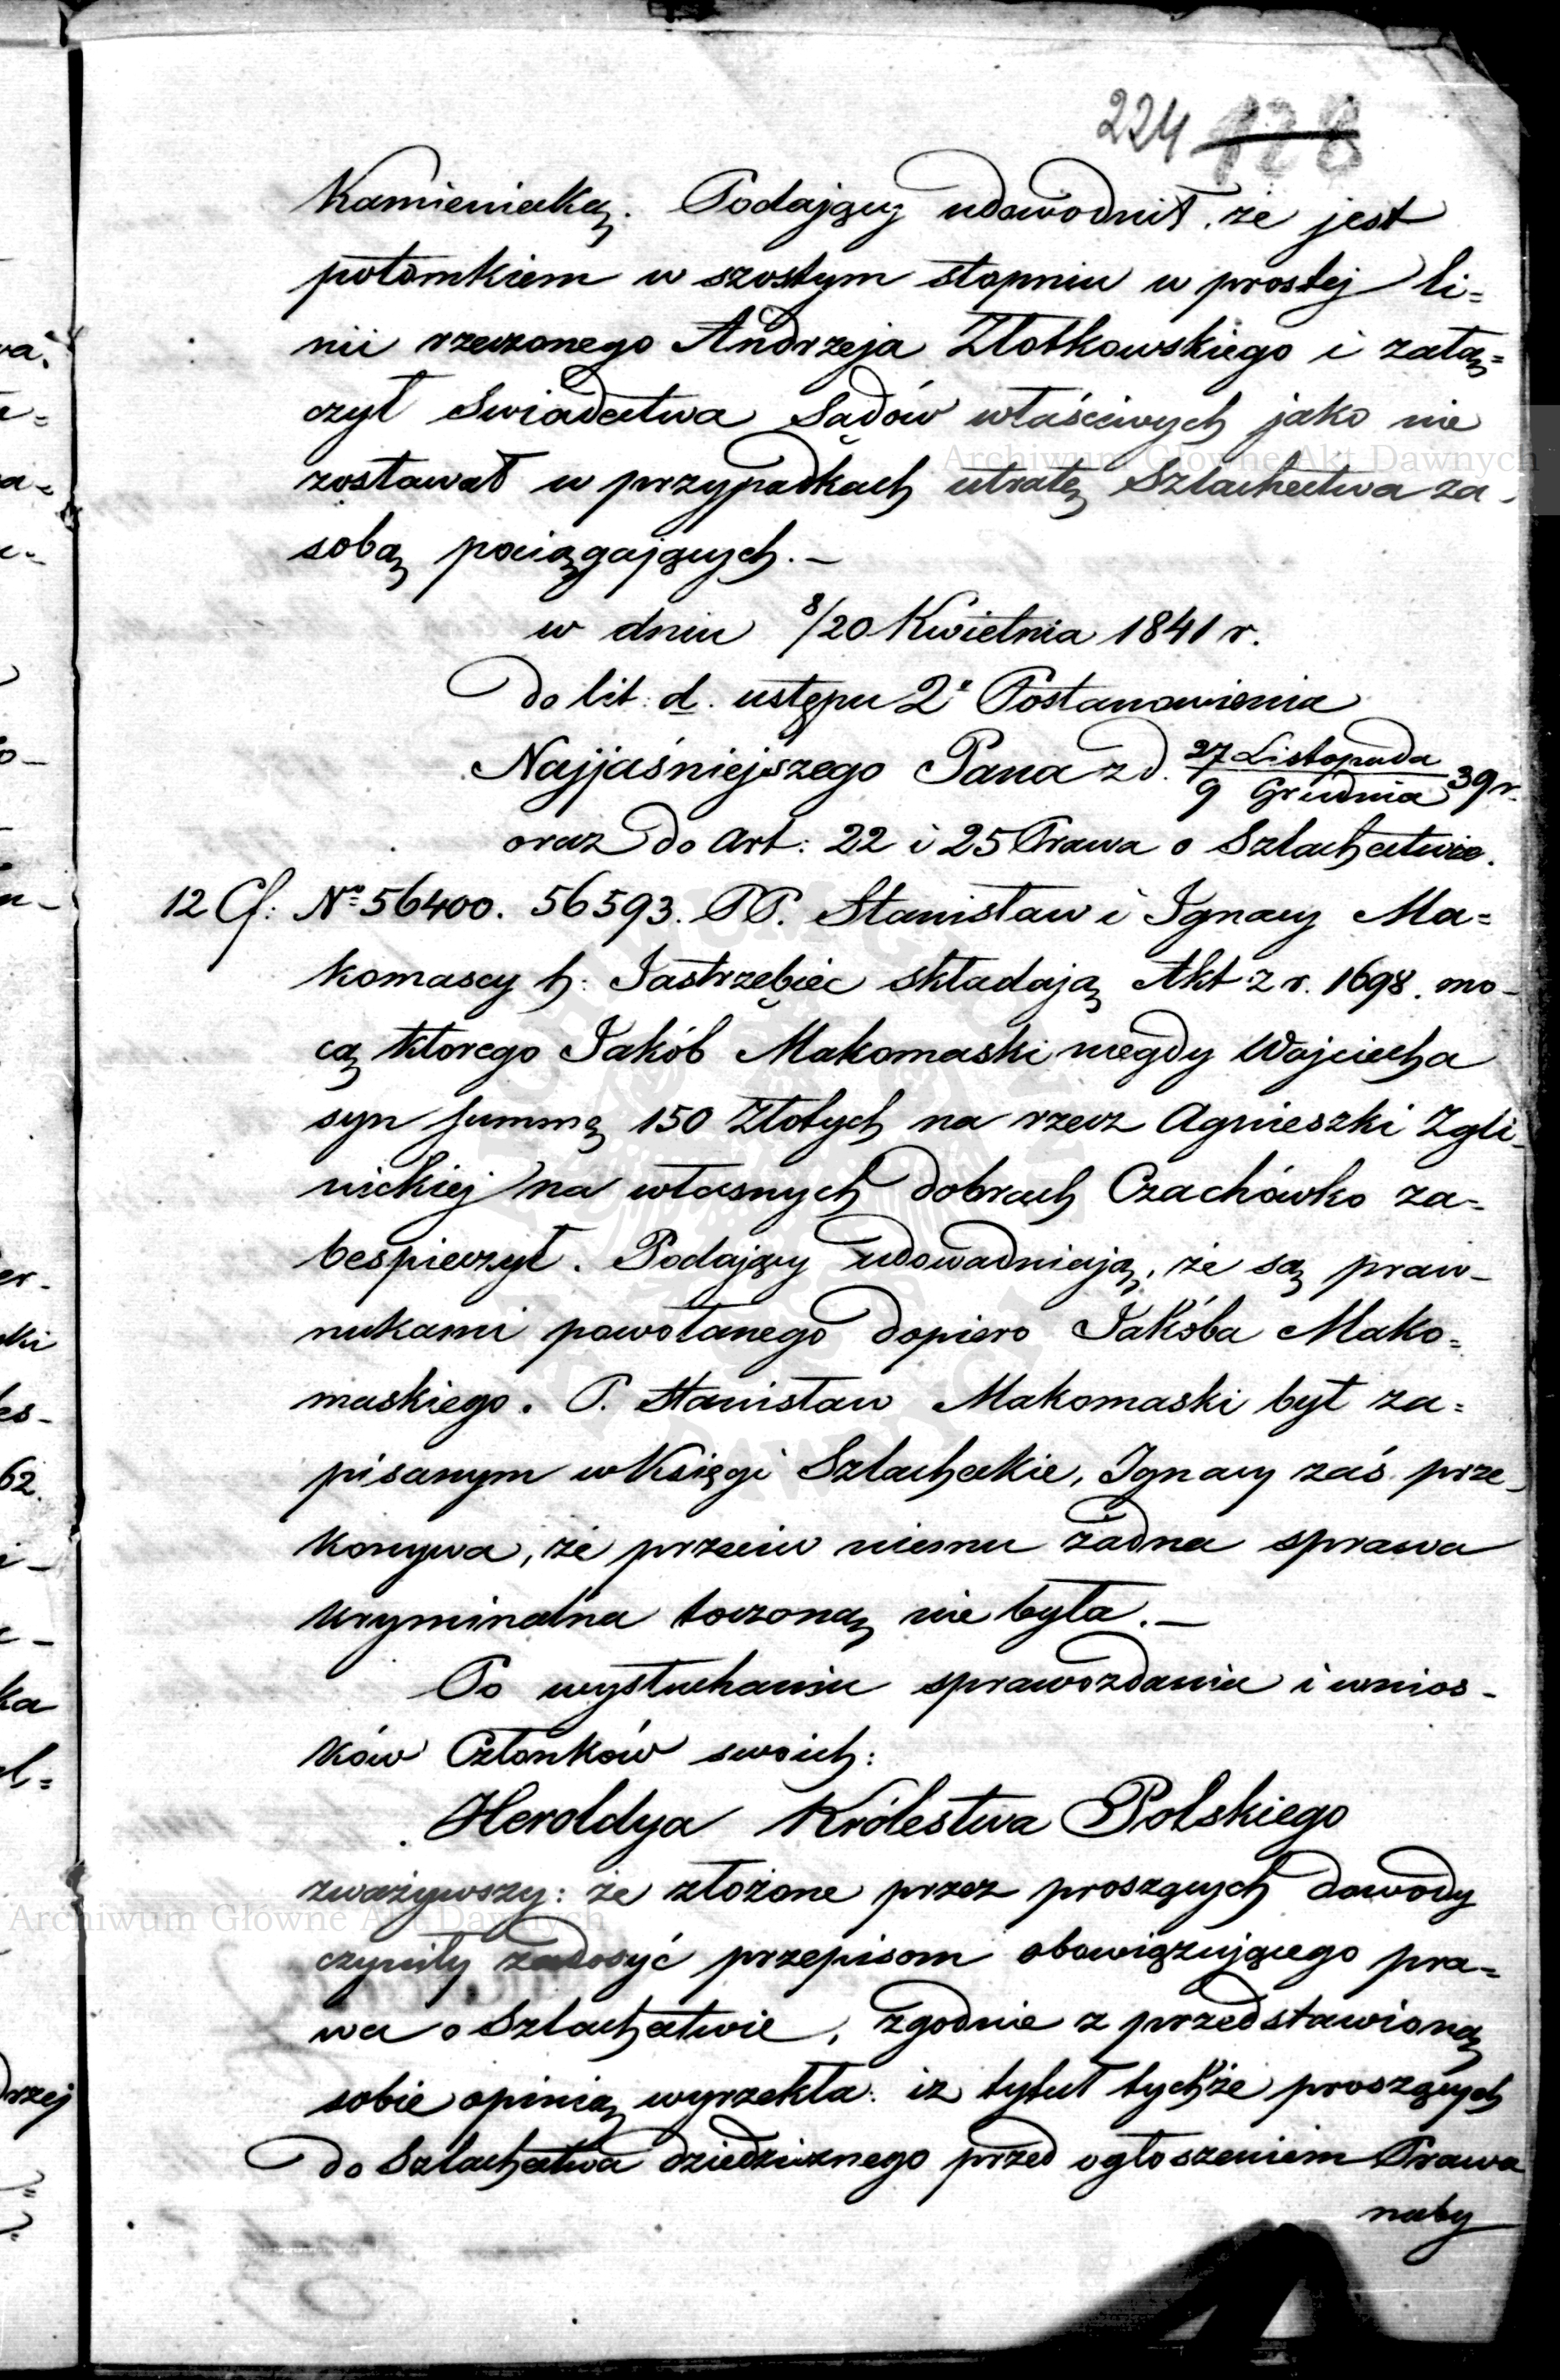 224 128
Kamieniecką. Podający udowodnił, że jest
potomkiem w szostym stopniu w prostej li=
nii rzeczonego Andrzeja Złotkowskiego i załą=
czył Swiadectwa Sądów właściwych jako nie
zostawał w przypadkach utratę Szlachectwa za-
sobą pociągających.-
w dniu 8/20 Kwietnia 1841 r.
do lit: d. ustępu 2º Postanowienia
Najjaśniejszego Pana z d. 27 Listopada / 9 Grudnia 39 r.
oraz do Art: 22 i 25 Prawa o Szlachectwie.
12 Cf: Nº 56400. 56593. PP. Stanisław i Ignacy Ma=
komascy h: Jastrzębiec składają Akt z r. 1698. mo-
cą ktorego Jakób Makomaski niegdy Wojciecha
syn summę 150 Złotych na rzecz Agnieszki Zgli-
nickiej na własnych dobrach Czachówko za=
bespieczył. Podający udowadniają, że są praw-
nukami powołanego dopiero Jakóba Mako=
maskiego. P. Stanisław Makomaski był za=
pisanym w Księgi Szlacheckie, Ignacy zaś prze-
konywa, że przeciw niemu żadna sprawa
kryminalna toczoną nie była.-
Po wysłuchaniu sprawozdania i wnios-
ków Członków swoich:
Heroldya Królestwa Polskiego
zważywszy: że złożone przez proszących dowody
czyniły zadosyć przepisom obowiązującego pra=
wa o Szlachectwie, zgodnie z przedstawioną
sobie opinią wyrzekła: iż tytuł tychże proszących
do Szlachectwa dziedzicznego przed ogłoszeniem Prawa
naby
Archiwum Główne Akt Dawnych
Archiwum Główne Akt Dawnych